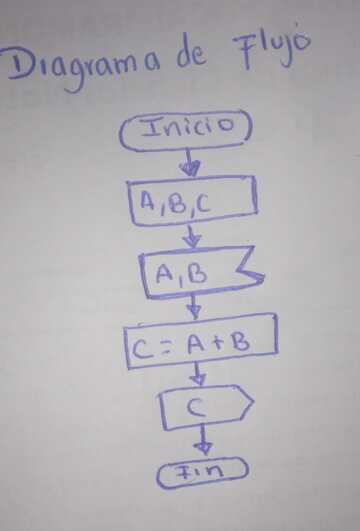 Diagrama de Flujo
Inicio
A,B,C
A,B
C = A + B
C
Fin